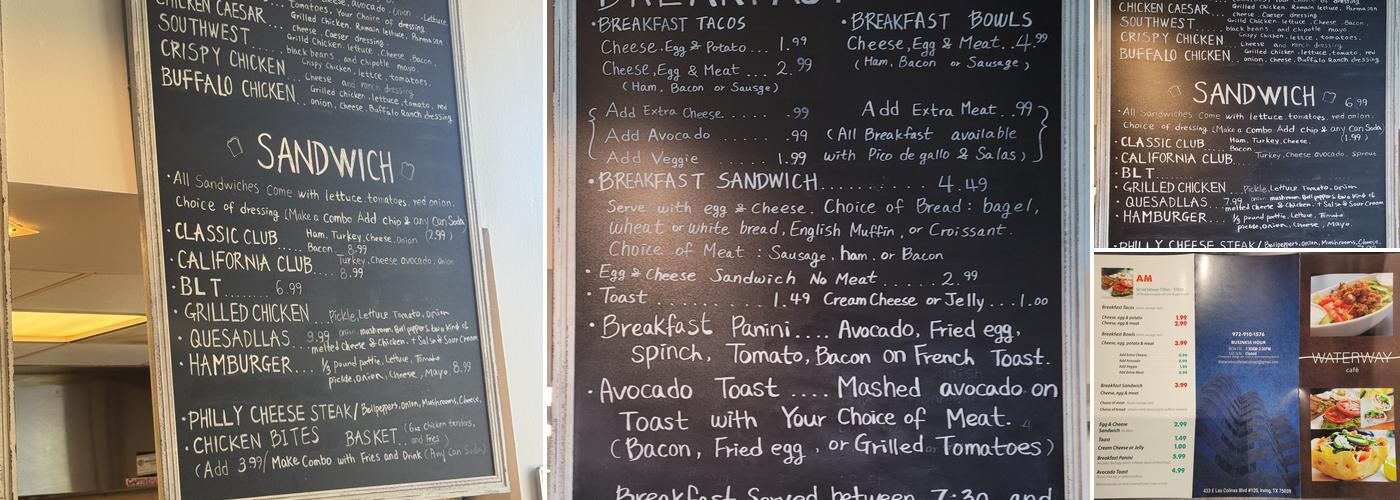 CHICKEN CAESAR
Tomatoes, Your Choice of dressing
Grilled Chicken, Romain lettuce, Parmasan
Cheese, Caeser dressing
SOUTHWEST
Grilld Chicken, lettuce, Cheese, Bacon,
black beans, and chipotle mayo.
CRISPY CHICKEN
Crispy Chicken, lettce, tomatoes,
Cheese and ranch dressing
BUFFALO CHICKEN
Grilled Chicken, lettuce, tomato, red
onion, Cheese, Buffalo Ranch dressing
SANDWICH
• All Sandwiches Come with lettuce, tomatoes, red onion.
Choice of dressing (Make a Combo Add chip & any Can Soda)
(2.99)
• CLASSIC CLUB Ham, Turkey, Cheese, Onion
Bacon 8.99
• CALIFORNIA CLUB.... Turkey, Cheese avocado, onion
8.99
• BLT....... 6.99
• GRILLED CHICKEN Pickle, Lettuce, Tomato, Onion
• QUESADLLAS 9.99 onion, mushroom, Bell peppers, two kind of
melted Cheese & Chicken. + Salsa & Sour Cream
• HAMBURGER... ⅓ pound pattie, Lettuce, Tomato
pickle, Onion, Cheese, Mayo 8.99
• PHILLY CHEESE STEAK/ Bellpeppers, Onion, Mushrooms, Cheese,
• CHICKEN BITES BASKET (6oz Chicken tenders,
and Fries)
(Add 3.99/ Make Combo with Fries and Drink (Any Can Soda)
BREAKFAST
• BREAKFAST TACOS
Cheese, Egg & Potato... 1.99
Cheese, Egg & Meat ... 2.99
(Ham, Bacon or Sausge)
• BREAKFAST BOWLS
Cheese, Egg & Meat..4.99
(Ham, Bacon or Sausage)
Add Extra Cheese..... .99
Add Avocado .99
Add Veggie ...... 1.99
Add Extra Meat..99
(All Breakfast available
with Pico de gallo & Salas)
• BREAKFAST SANDWICH.......... 4.49
Serve with egg & Cheese. Choice of Bread: bagel,
wheat or white bread, English Muffin, or Croissant.
Choice of Meat: Sausage, ham, or Bacon
• Egg & Cheese Sandwich No Meat ...... 2.99
• Toast ............ 1.49 Cream Cheese or Jelly...1.00
• Breakfast Panini.... Avocado, Fried egg,
spinch, Tomato, Bacon on French Toast.
• Avocado Toast .... Mashed avocado on
Toast with Your Choice of Meat.
(Bacon, Fried egg, or Grilled Tomatoes)
Breakfast Served between 7:30 and
CHICKEN CAESAR
Grilled Chicken, Romain lettuce, Parmasan
Cheese, Caeser dressing
SOUTHWEST
Grilld Chicken, lettuce, Cheese, Bacon,
black beans, and chipotle mayo.
CRISPY CHICKEN
Crispy Chicken, lettce, tomatoes,
Cheese and ranch dressing
BUFFALO CHICKEN
Grilled Chicken, lettuce, tomato, red
onion, Cheese, Buffalo Ranch dressing
SANDWICH 6.99
• All Sandwiches Come with lettuce, tomatoes, red onion.
Choice of dressing (Make a Combo Add chip & any Can Soda)
(1.99)
• CLASSIC CLUB Ham, Turkey, Cheese,
Bacon
• CALIFORNIA CLUB Turkey, Cheese, avocado, Sprout
BLT
• GRILLED CHICKEN Pickle, Lettuce, Tomato, Onion
• QUESADLLAS 7.99 onion, mushroom, Bell peppers, two kind of
melted Cheese & Chicken. + Salsa & Sour Cream
• HAMBURGER... ⅓ pound pattie, Lettuce, Tomato
pickle, Onion, Cheese, Mayo
• PHILLY CHEESE STEAK/ Bellpeppers, Onion, Mushrooms, Cheese,
AM
Breakfast Tacos
Cheese, egg & potato 1.99
Cheese, egg & meat 2.99
Breakfast Bowls
Cheese, egg, potato & meat 3.99
Add Extra Cheese 0.99
Add Avocado 0.99
Add Veggie 1.99
Add Extra Meat 0.99
Breakfast Sandwich 3.99
Cheese, egg & meat
Choice of meat
Choice of bread
Egg & Cheese 2.99
Sandwich
Toast 1.49
Cream Cheese or Jelly 1.00
Breakfast Panini 5.99
Avocado Toast 4.99
972-910-1576
BUSINESS HOUR
433 E Las Colinas Blvd #120, Irving, TX 75039
WATERWAY
café